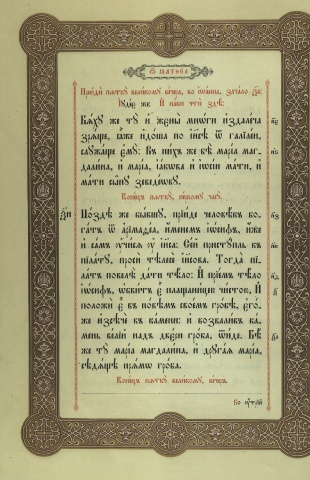 Ѿ МАТѲЕА
Прейди пѧткꙋ великомꙋ вечера, во іѡанна, зачало
І҆ꙋдее же И паки чти здѣ:
Бѧхꙋ же тꙋ и жєны мнѡги издалєча
зрѧщѧ, ꙗже идоша по іи҃сѣ ѿ галілєи,
слꙋжащѧ ємꙋ: Въ нихже бѣ маріа маг-
далина, и маріа, іакѡва и іѡсіи мати, и
мати сынꙋ зєвєдєѡвꙋ.
Конецъ пѧткꙋ, первомꙋ часꙋ.
Поздѣ же бывшꙋ, прїидє чєловѣкъ бо-
гатъ ѿ арімаѳєа, имєнємъ іѡсифъ, ижє
и самъ ꙋчисѧ ꙋ іи҃са: Сєй пристꙋпль къ
пілатꙋ, проси тѣлєсє іи҃сова. Тогда пі-
латъ повєлѣ дати тѣло: И прїємъ тѣло
іѡсифъ, ѡбвитъ є плащаницєю чистою, И
положи є въ новѣмъ своємъ гробѣ, єго-
жє изсѣчє въ камєни: и возваливъ ка-
мєнь вєлїй надъ двєри гроба, ѿидє. Бѣ
жє тꙋ маріа магдалина, и дрꙋгаѧ маріа,
сѣдѧщѣ прѧмѡ гроба.
Конецъ пѧткꙋ великомꙋ, вечеръ.
Во ꙋтрїй